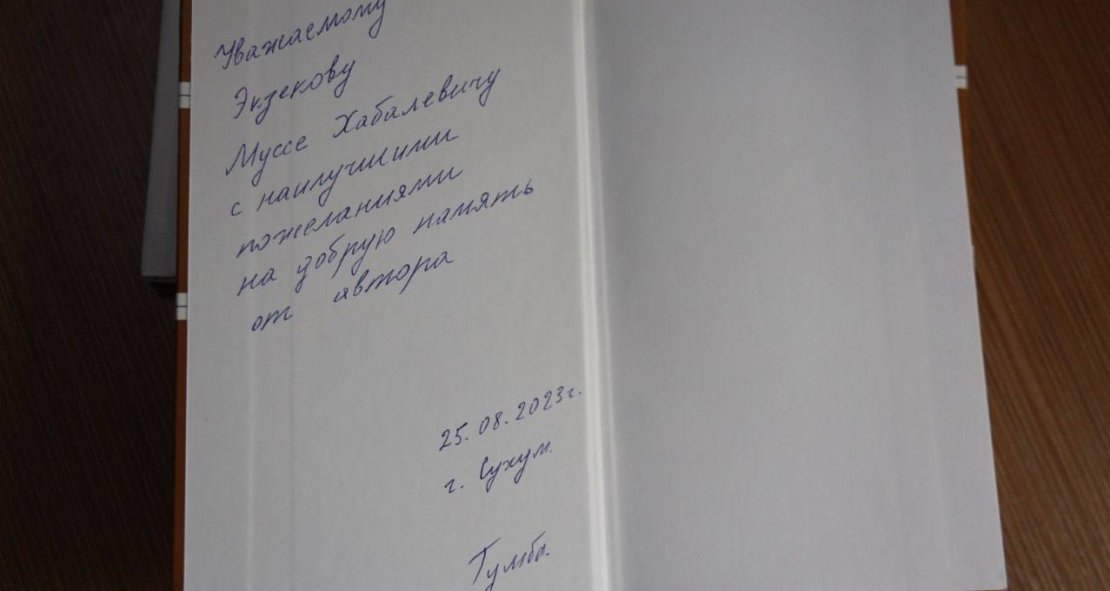 Уважаемому
Экзекову
Муссе Хабалевичу
с наилучшими
пожеланиями
на добрую память
от автора
25.08.2023г.
г. Сухум.
Гумба.